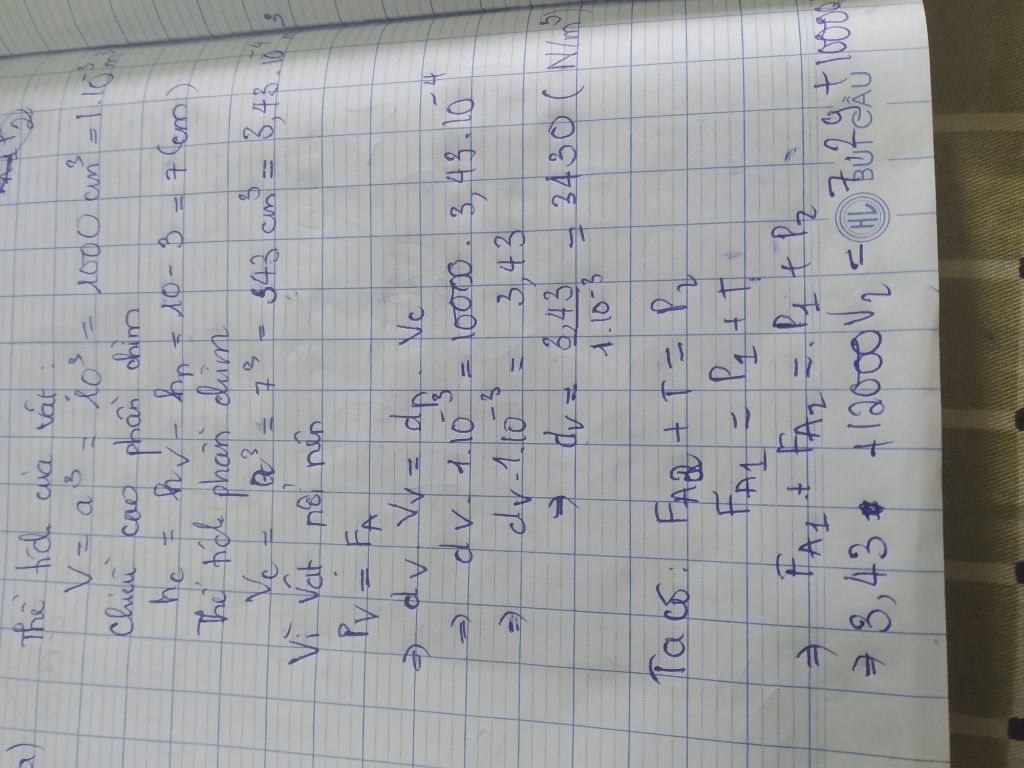 a)
Thể tích của vật:
V = a³ = 10³ = 1000 cm³ = 1.10⁻³m³
Chiều cao phần chìm
hc = hv - hn = 10 - 3 = 7 (cm)
Thể tích phần chìm
Vc = a³ = 7³ = 343 cm³ = 3,43.10⁻⁴ m³
Vì vật nổi nên
Pv = FA
=> dv Vv = dn Vc
=> dv . 1.10⁻³ = 10000 . 3,43.10⁻⁴
=> dv . 1.10⁻³ = 3,43
=> dv = 3,43 / 1.10⁻³ = 3430 (N/m³)
Ta có: FA2 + T = P2
FA1 = P1 + T
=> FA1 + FA2 = P1 + P2
=> 3,43 + 12000V2 = 7,29 + 10000
HL BÚT CHÂU